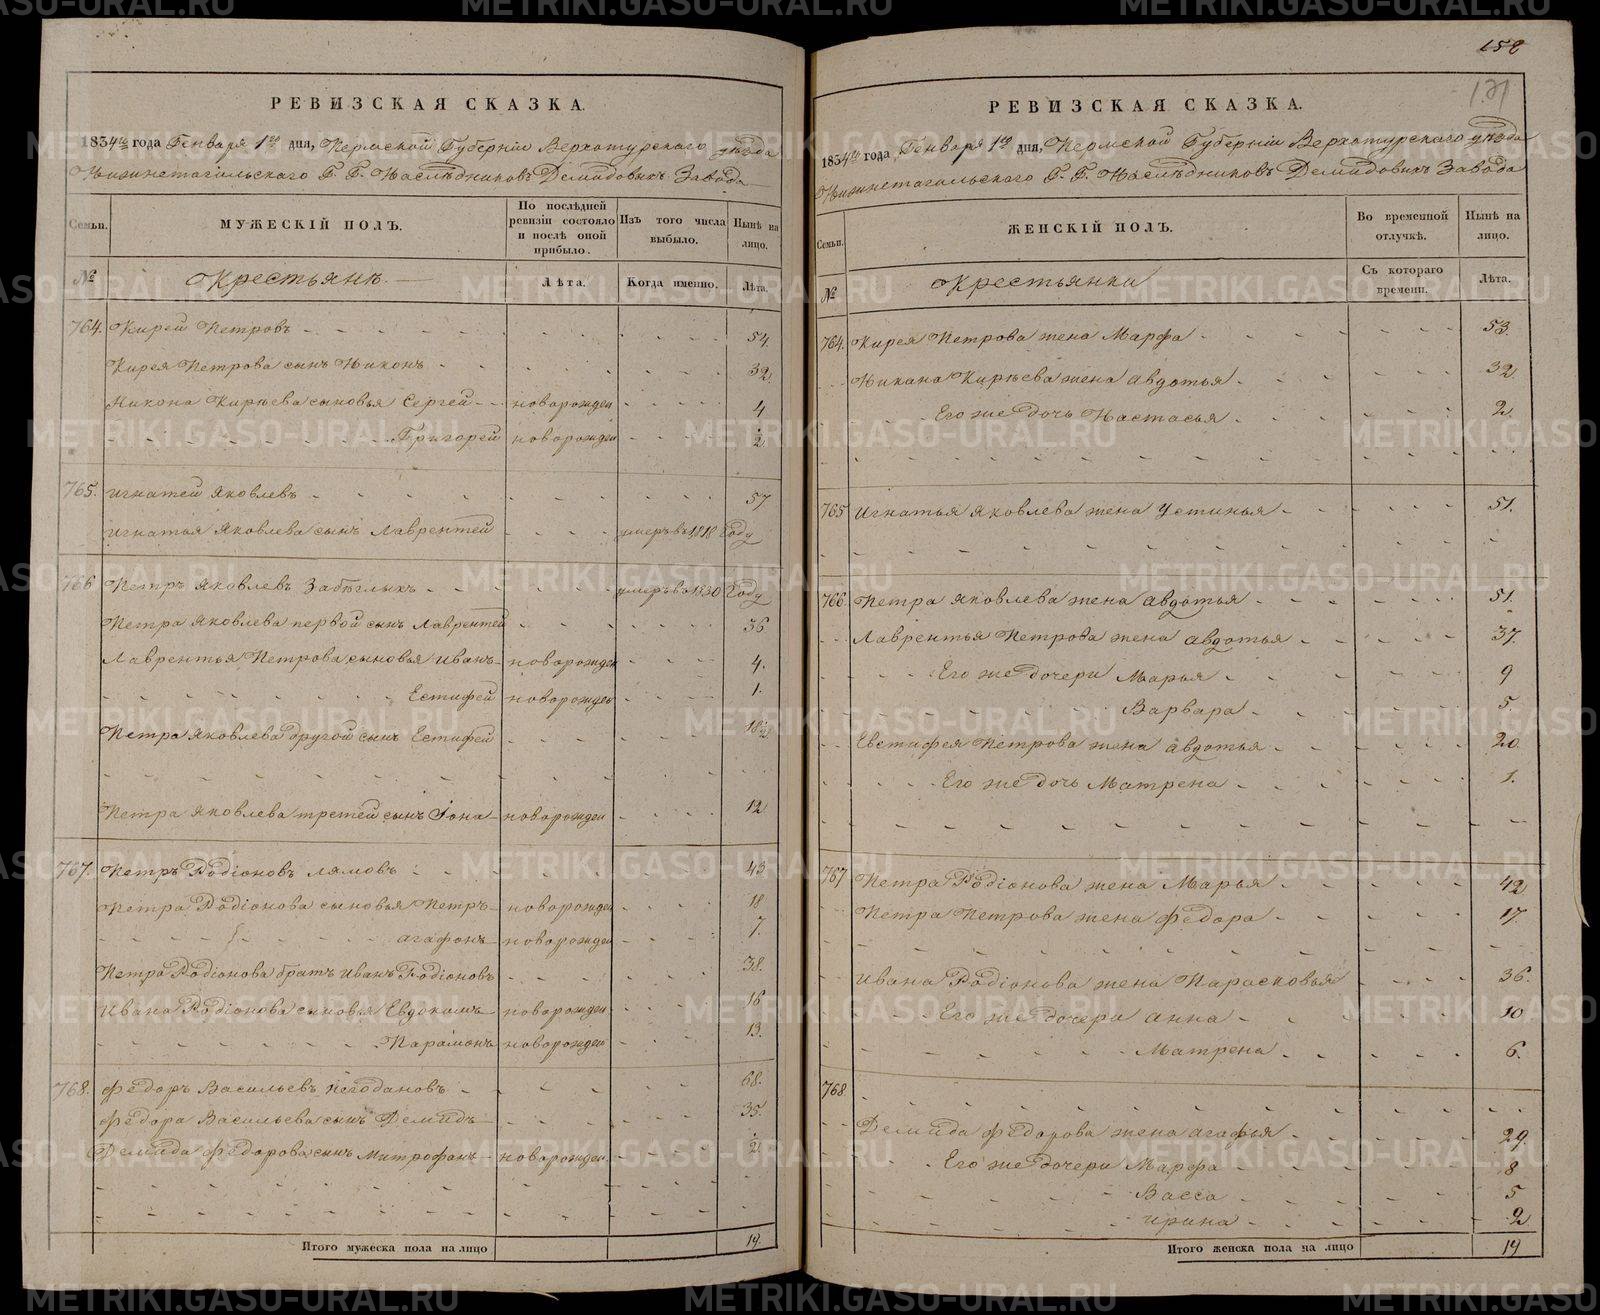 РЕВИЗСКАЯ СКАЗКА.
1834го года Генваря 1го дня, Пермской Губернiи Верхотурского уѣзда
Нижнетагильского Г. Г. Наслѣдниковъ Демидовыхъ Завода
Семьи. МУЖЕСКIЙ ПОЛЪ. По послѣдней ревизiи состояло и послѣ оной прибыло. Изъ того числа выбыло. Нынѣ на лицо.
№ Крестьянѣ. Лѣта. Когда именно. Лѣта.
764. Кирей Петровъ 54
Кирея Петрова сынъ Никонъ 32
Никона Кирѣева сыновья Сергей новорожден 4
Григорей новорожден 1/2
765. Игнатей Яковлевъ 57
Игнатья Яковлева сынъ Лаврентей умеръ въ 1818 Году
766 Петръ Яковлевъ Забѣглыхъ умеръ въ 1830 Году
Петра Яковлева первой сынъ Лаврентей 36
Лаврентья Петрова сыновья Иванъ новорожден 4.
Естифей новорожден 1.
Петра Яковлева другой сынъ Естифей 18 1/2
Петра Яковлева третей сынъ Iона новорожден 12
767. Петръ Родiоновъ Лямовъ 43
Петра Родiонова сыновья Петръ новорожден 18
Агафонъ новорожден 7.
Петра Родiонова братъ Иванъ Родiоновъ 38.
Ивана Родiонова сыновья Евдокимъ новорожден 16
Парамонъ новорожден 13.
768. Федоръ Васильевъ Негодановъ 68.
Федора Васильева сынъ Демидъ 35.
Демида Федорова сынъ Митрофанъ новорожден 1/2
Итого мужеска пола на лицо 19.
158
131
РЕВИЗСКАЯ СКАЗКА.
1834го года Генваря 1го дня, Пермской Губернiи Верхотурского уѣзда
Нижнетагильского Г. Г. Наслѣдниковъ Демидовыхъ Завода
Семьи. ЖЕНСКIЙ ПОЛЪ. Во временной отлучкѣ. Нынѣ на лицо.
№ Крестьянки Съ котораго времени. Лѣта.
764. Кирея Петрова жена Марфа 53.
Никана Кирѣева жена Авдотья 32
Его же дочь Настасья 2
765 Игнатья Яковлева жена Устинья 51.
766. Петра Яковлева жена Авдотья 51.
Лаврентья Петрова жена Авдотья 37.
Его же дочери Марья 9
Варвара 5
Евстифея Петрова жена Авдотья 20
Его же дочь Матрена 1.
767 Петра Родiонова жена Марья 42
Петра Петрова жена Федора 17.
Ивана Родiонова жена Парасковья 36
Его же дочери Анна 10
Матрена 6.
768.
Демида Федорова жена Агафья 29.
Его же дочери Марфа 8
Васса 5
Ирина 2
Итого женска пола на лицо 19
METRIKI.GASO-URAL.RU